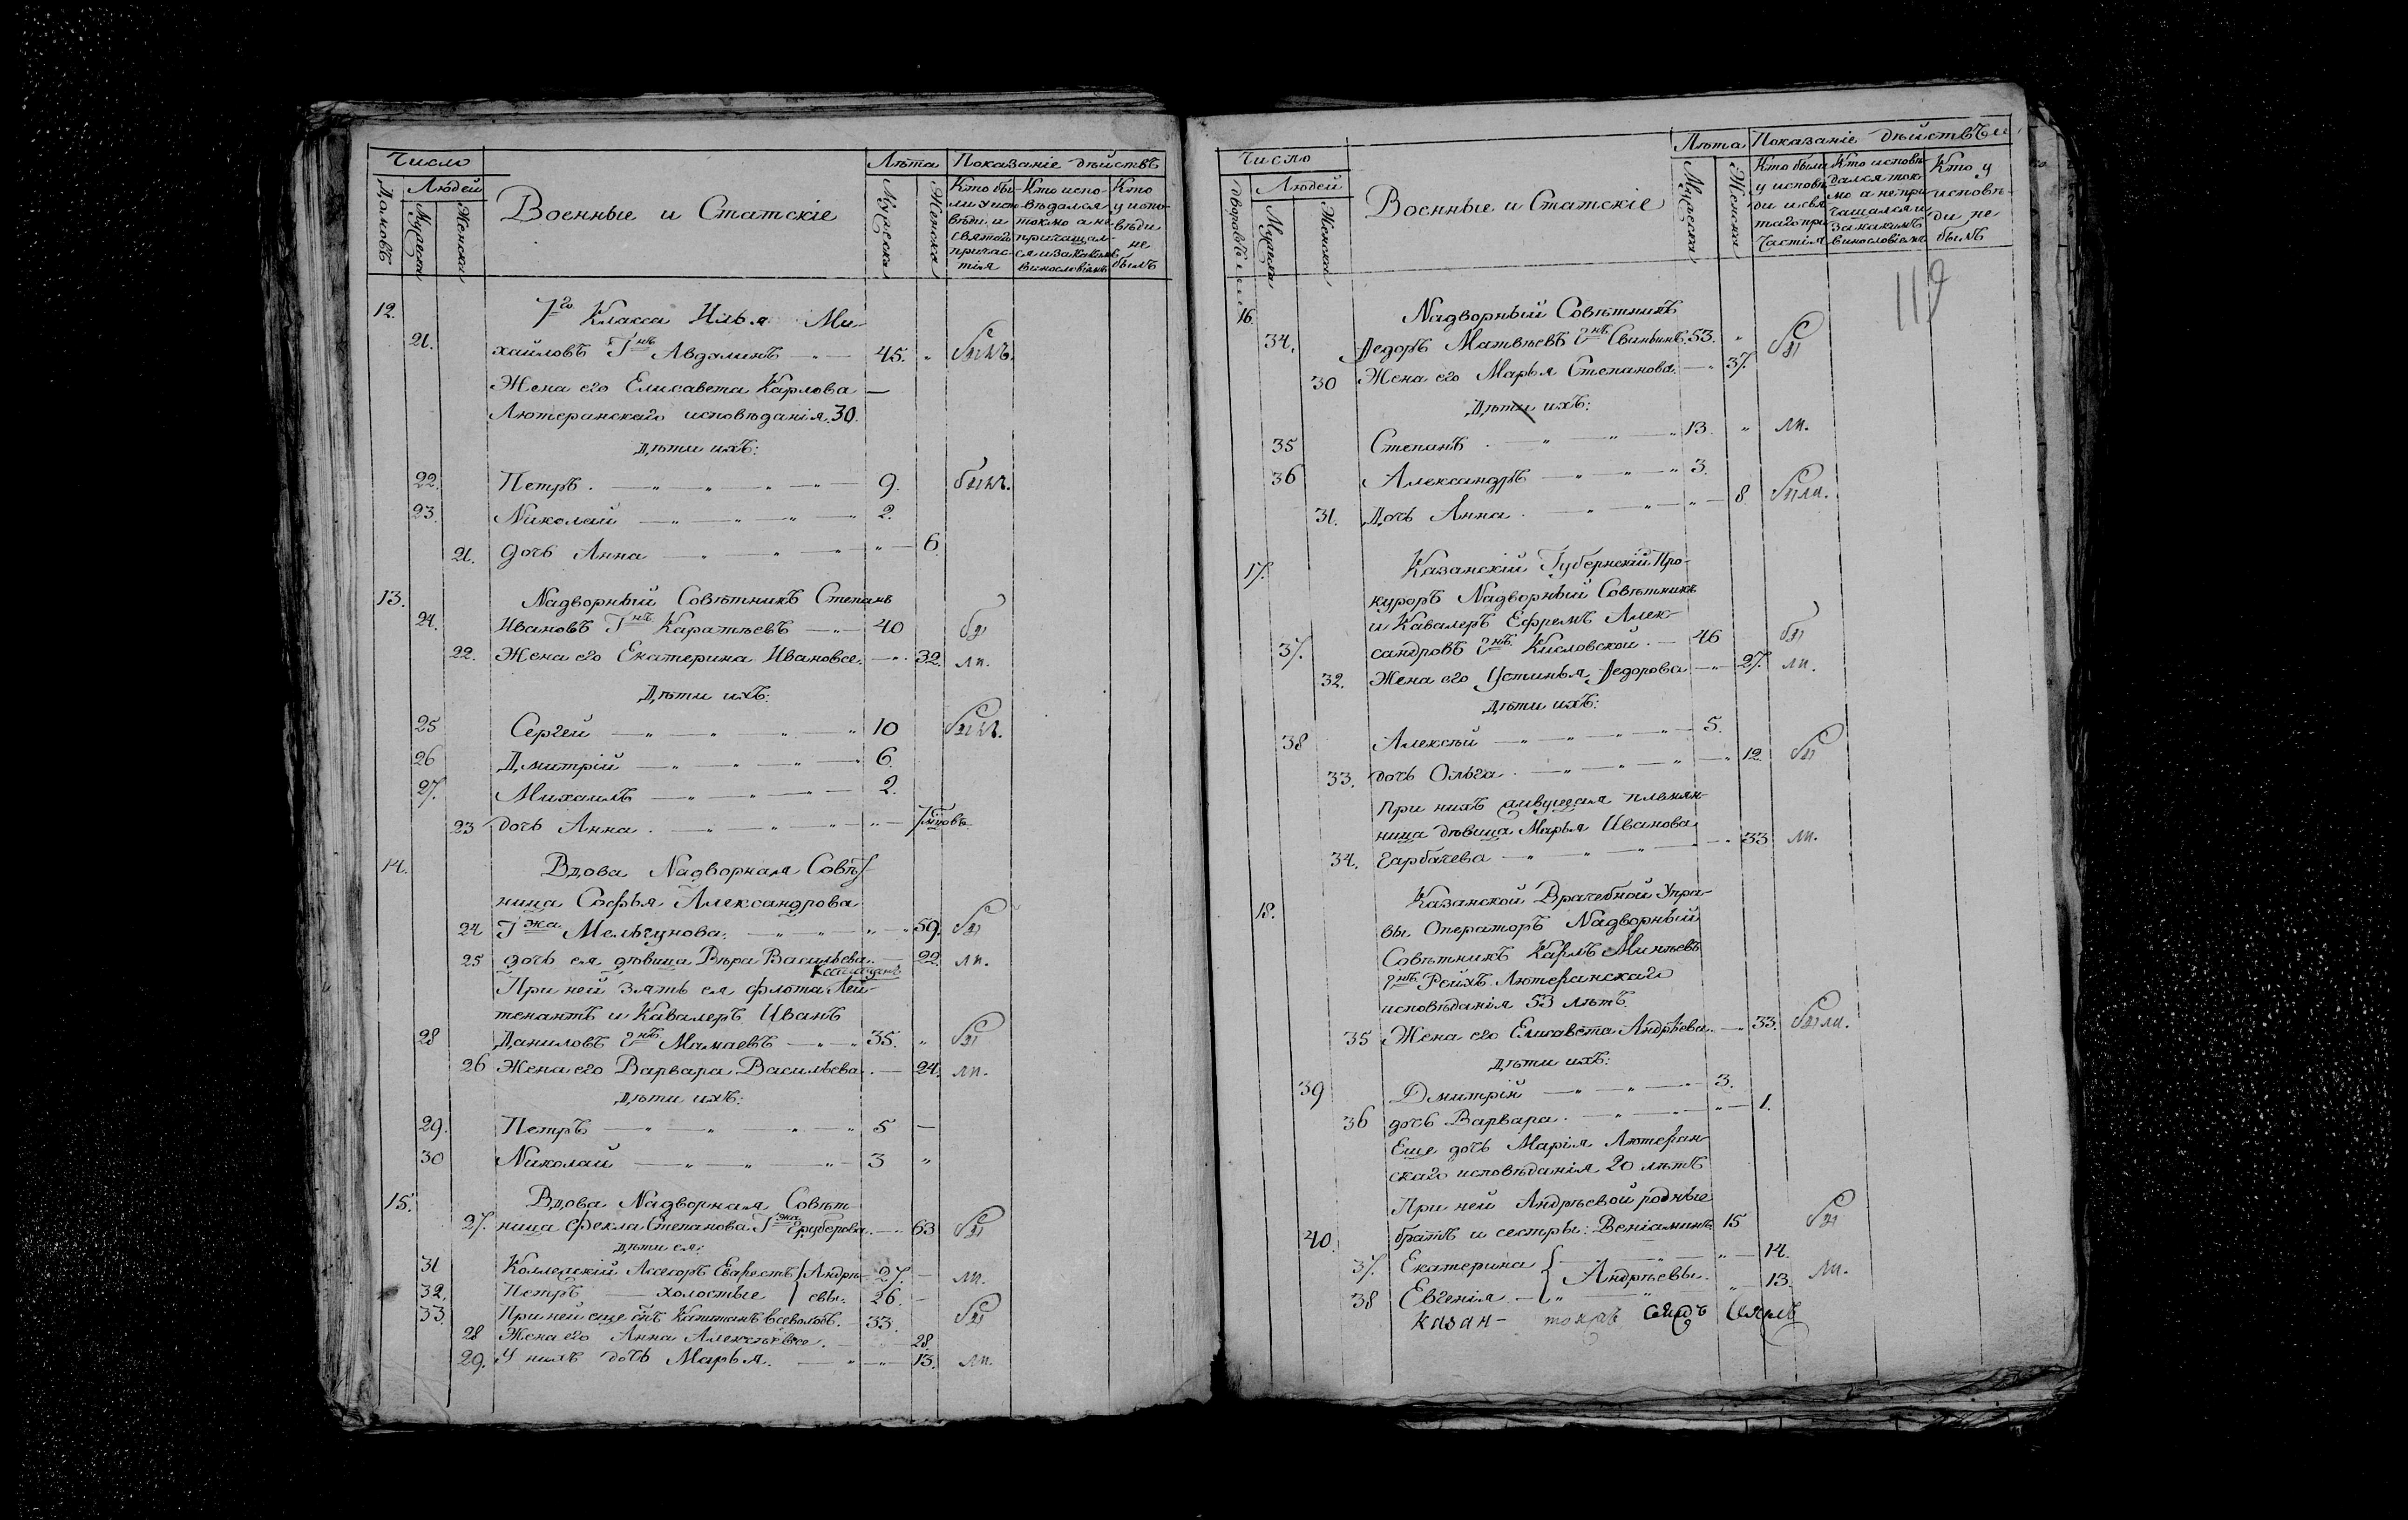 Число
Людей
Домовъ
Мужеска
Женска
Военные и Статскіе
Лѣта
Мужеска
Женска
Показаніе дѣйствъ
Кто бы-
ли у испо-
вѣди и
святаго
причас-
тія
Кто испо-
вѣдался
токмо а не
причащал-
ся и за какимъ
винословіемъ
Кто
у испо-
вѣди
не
былъ
12. 7го Класса Илья Ми-
21. хайловъ Гнъ Авдалинъ 45. былъ.
Жена его Елисавета Карлова
Лютеранскаго исповѣданія. 30.
Дѣти ихъ:
22. Петръ. 9. былъ.
23. Николай 2.
21. дочь Анна 6.
13. Надворный Совѣтникъ Степанъ
24. Ивановъ Гнъ Каратѣевъ 40 бы
22. Жена его Екатерина Ивановае. 32. ли.
Дѣти ихъ:
25 Сергей 10 былъ.
26 Дмитрій 6.
27. Михаилъ 2.
23 дочь Анна.
14. Вдова Надворная Совѣт-
ница Софья Александрова
24 Гжа Мельгунова. 59. бы
25 дочь ея дѣвица Вѣра Васильева. 22. ли.
При ней зять ея флота Лей-
тенантъ и Кавалеръ Иванъ
28 Даниловъ гнъ Мамаевъ 35. бы
26 Жена его Варвара Васильева. 24. ли.
Дѣти ихъ:
29. Петръ 5
30 Николай 3
15. Вдова Надворная Совѣт-
27. ница Фекла Степанова Гжа 63 бы
Дѣти ея:
31 Коллежскій Асесоръ Еварестъ Андрѣ- 27. ли.
32. Петръ холостые евы. 26.
33. При ней еще Капитанъ Всеволодъ. 33. бы
28 Жена его Анна Алексѣевае. 28.
29. У нихъ дочь Марья. 13. ли.
Число
Людей
Мужеска
Женска
Военные и Статскіе
Лѣта
Мужеска
Женска
Показаніе дѣйствъ
Кто были
у исповѣ-
ди и свя
таго при-
частія
Кто исповѣ-
дался ток-
мо а непри
чащался и
за какимъ
винословіемъ
Кто у
исповѣ-
ди не
былъ
119
16. Надворный Совѣтникъ
34. Ѳедоръ Матвѣевъ гнъ Свиньинъ. 53. бы
30 Жена его Марья Степанова. 37.
Дѣти ихъ:
35 Степанъ 13. ли.
36 Александръ 3.
31. Дочь Анна. 8 были.
17. Казанскій Губернскій Про-
куроръ Надворный Совѣтникъ
и Кавалеръ Ефремъ Алек-
37. сандровъ гнъ Кисловской. 46 бы
32. Жена его Устинья Ѳедорова 27. ли.
Дѣти ихъ:
38 Алексѣй 5.
33. дочь Ольга. 12. бы
При нихъ живущая племян-
ница дѣвица Марья Иванова
34. Гарбачева 33 ли.
18. Казанской Врачебной Упра-
вы Операторъ Надворный
Совѣтникъ Карлъ Минѣевъ
гнъ Рейхъ Лютеранскаго
исповѣданія 53 лѣтъ.
35 Жена его Елисавета Андрѣева. 33. были.
Дѣти ихъ:
39 Дмитрій 3.
36 дочь Варвара. 1.
Еще дочь Марія Лютеран-
скаго исповѣданія 20 лѣтъ
При ней Андрѣевой родные
40. братъ и сестры: Веніаминъ. 15 бы
37. Екатерина 14.
Андрѣевы. ли.
38 Евгенія 13.
казан-